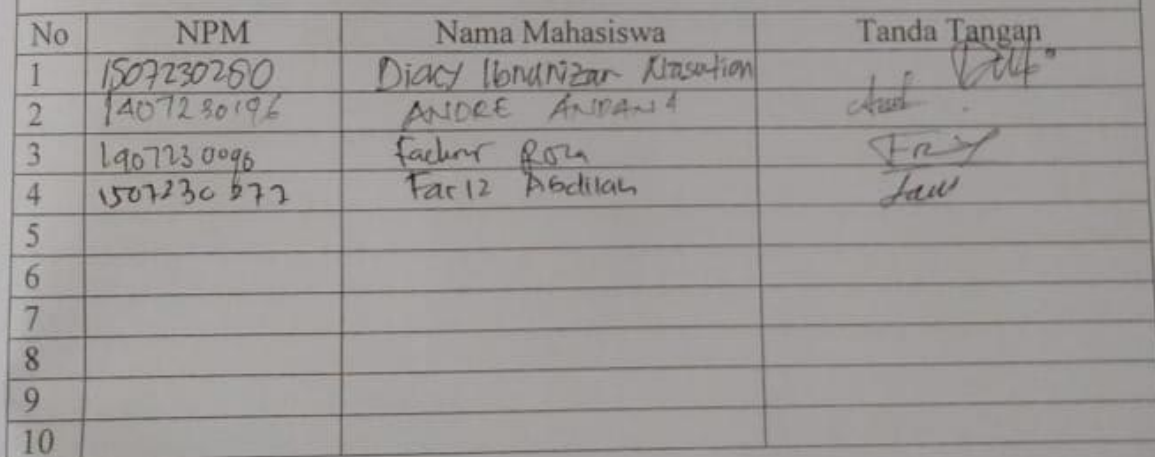 No NPM Nama Mahasiswa Tanda Tangan
1 1507230280 Diacy Ibnunizan Nasution
2 1407230196 ANDRE ANDANA
3 1907230096 Fachrur Roza
4 1507230272 Fariz Abdilah
5
6
7
8
9
10